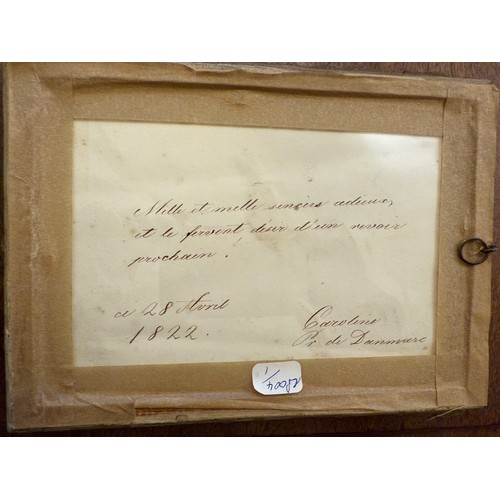 Mille et mille sincers adieux,
et le fervent désir d'un revoir
prochain!
ce 28 Avril
1822.
Caroline
Pr. de Danmarc